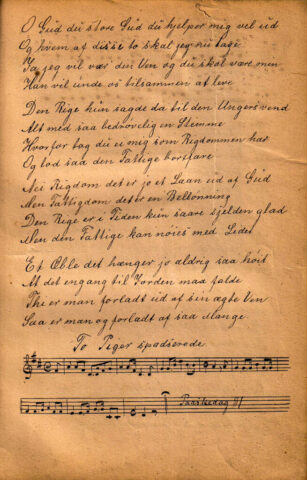 O Gud du store Gud du hjelper mig vel ud
Og hvem af disse to skal jeg nu tage
Ja jeg vil vær din Ven og du skal være men
Han vil unde os tilsammen at leve
Den Rige hun sagde da til den Ungersvend
Alt med saa bedrøvelig en Stemme
Hvorfor tog du ei mig som Rigdommen har
Og lod saa den Fattige bortfare
Nei Rigdom det er jo et Laan ud af Gud
Men Fattigdom det er en Beltonning
Den Rige er i Tiden kun saare sjelden glad
Men den Fattige kan nøies med Lidet
Et Æble det hænger jo aldrig saa høit
At det engang til Jorden maa falde
The er man forladt ud af sin ægte Ven
Saa er man og forladt af saa Mange
To Piger spadserede
Paaskedag